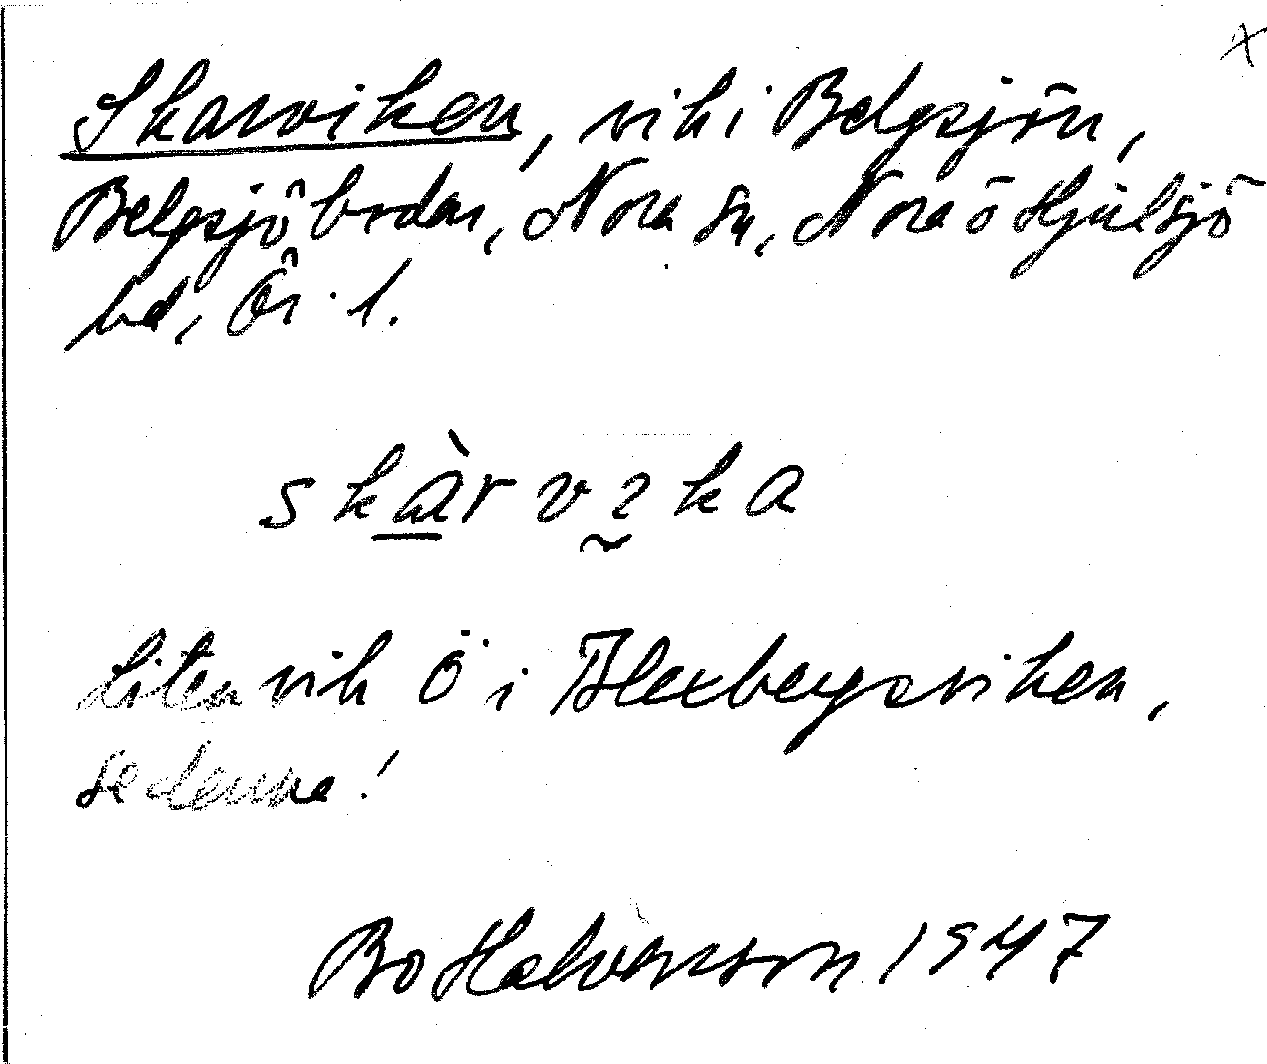 x
Skarviken, vik i Bälgsjön,
Bälgsjöbodar, Nora sn, Nora o Hjulsjö
bd, Ör. l.
skàrvıka
Liten vik Ö i Blexbergsviken,
se denna!
Bo Halvarsson 1947